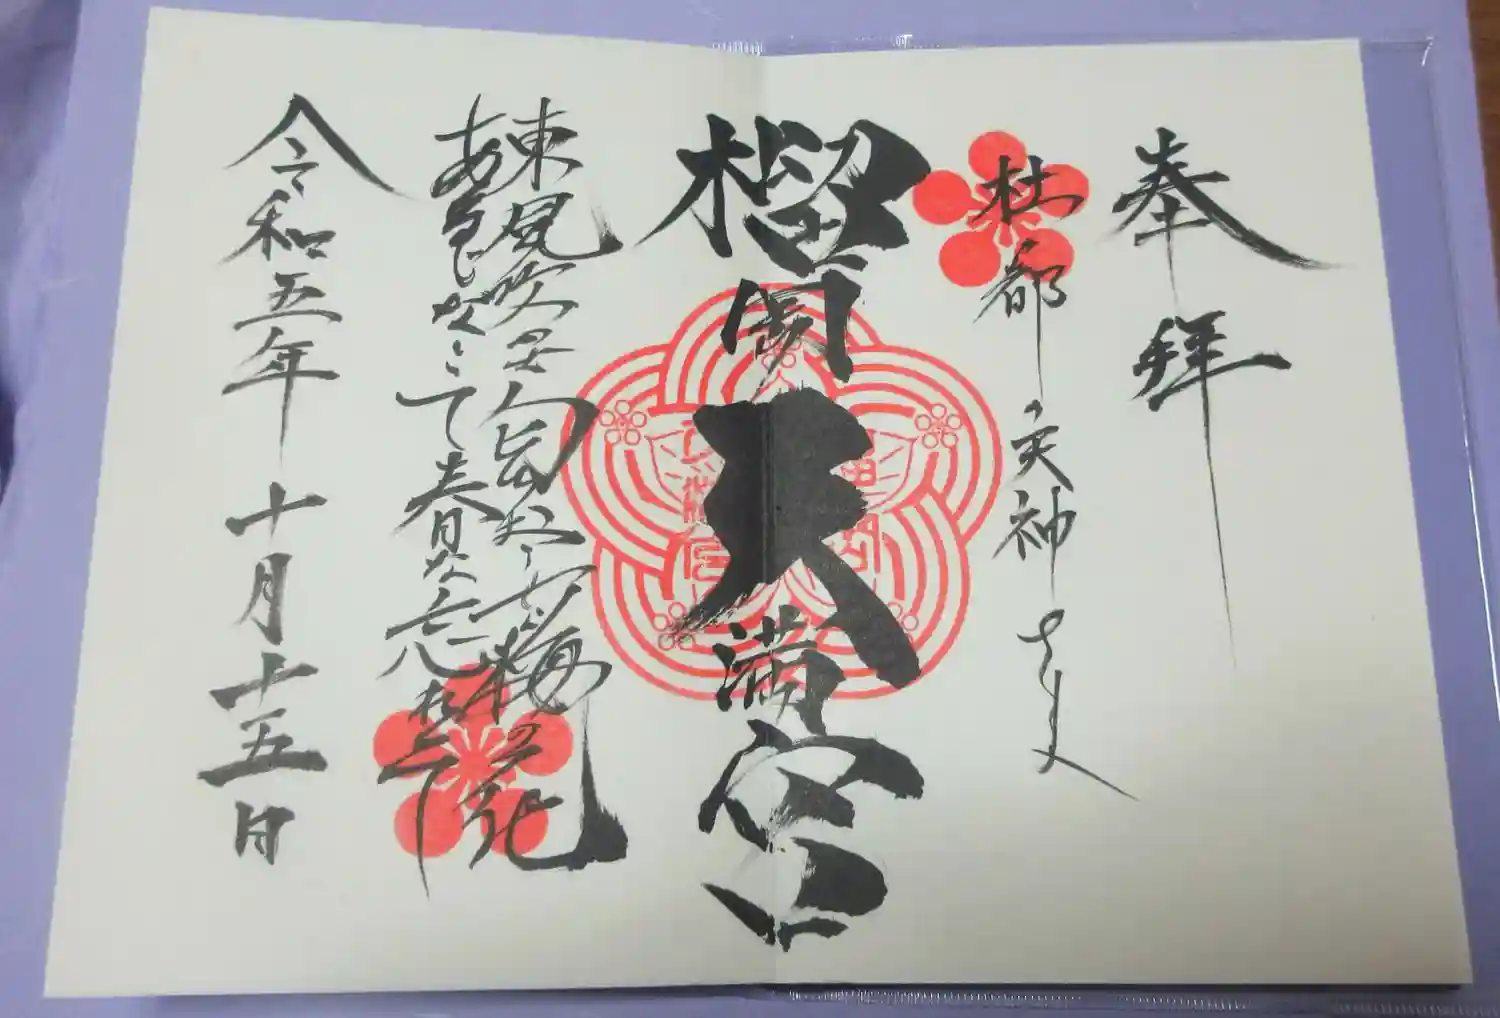 奉拝
杜都天神さま
榴岡天満宮
東風吹かば匂ひおこせよ梅の花
あるじなしとて春な忘れそ
令和五年十月十五日